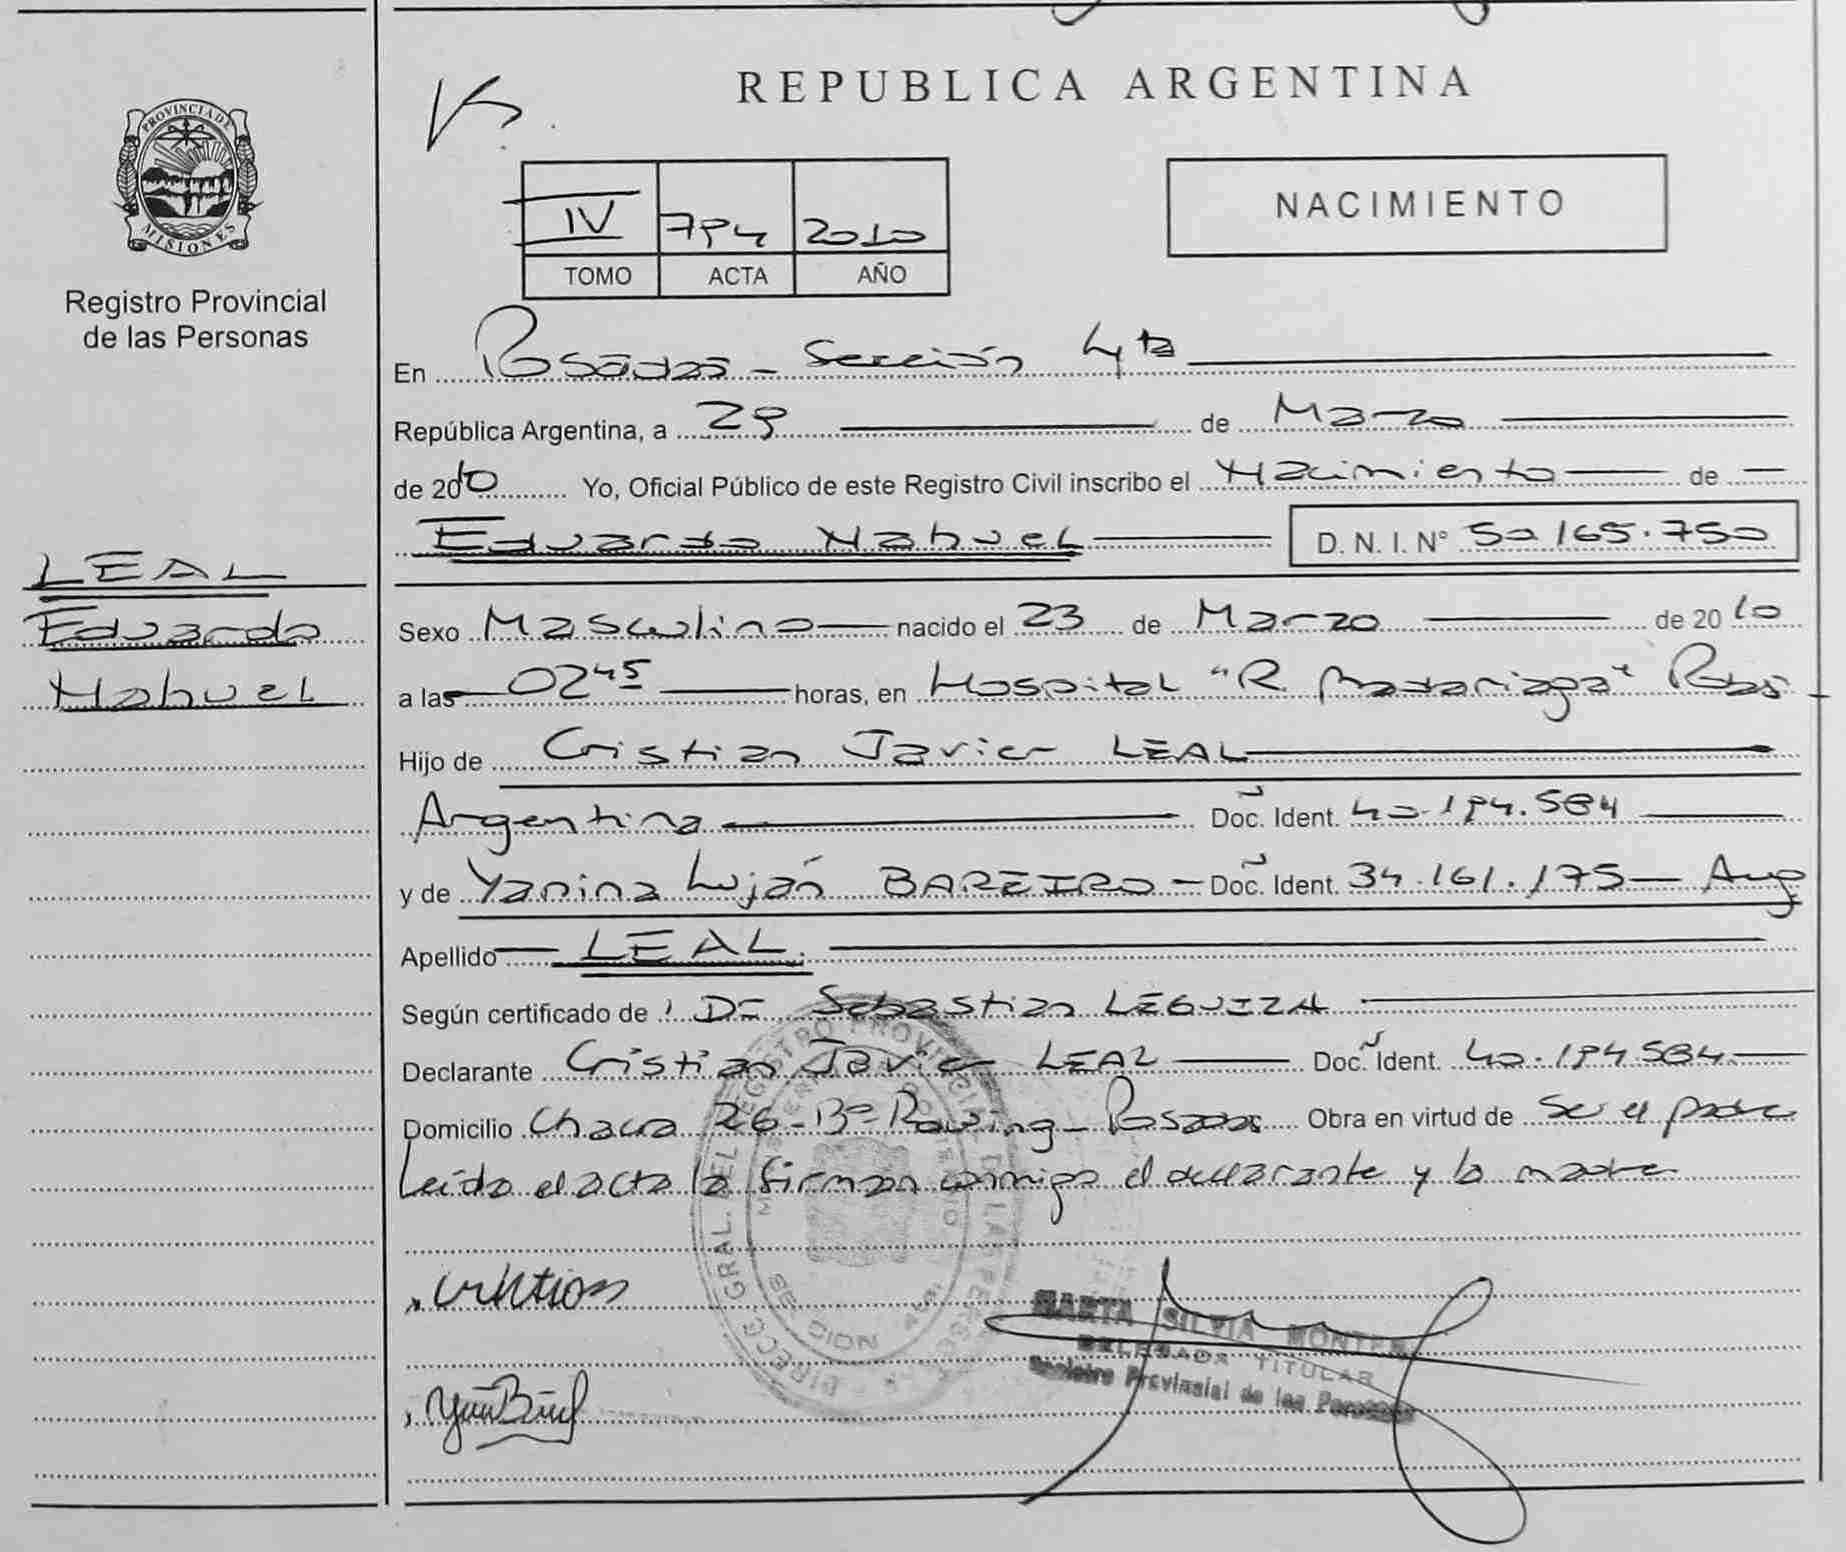 PROVINCIA DE
MISIONES
Registro Provincial
de las Personas
REPUBLICA ARGENTINA
NACIMIENTO
IV 794 2010
TOMO ACTA AÑO
En Posadas - Sección 4ta
República Argentina, a 29 de Marzo
de 2010 Yo, Oficial Público de este Registro Civil inscribo el Nacimiento de
Eduardo Nahuel D. N. I. N° 50.165.750
LEAL
Eduardo
Nahuel
Sexo Masculino nacido el 23 de Marzo de 2010
a las 02 45 horas, en Hospital "R. Madariaga" Pdas
Hijo de Cristian Javier LEAL
Argentina Doc. Ident. 40.194.584
y de Yanina Luján BAREIRO - Doc. Ident. 34.161.175 - Arg
Apellido LEAL.
Según certificado de : De Sebastian LEGUIZA
Declarante Cristian Javier LEAL Doc. Ident. 40.194.584
Domicilio Chacra 26 - B° Rowing - Posadas Obra en virtud de Ser el padre
Leída el acta la firman conmigo el declarante y la madre
MARTA SILVIA MONTES
DELEGADA TITULAR
Registro Provincial de las Personas